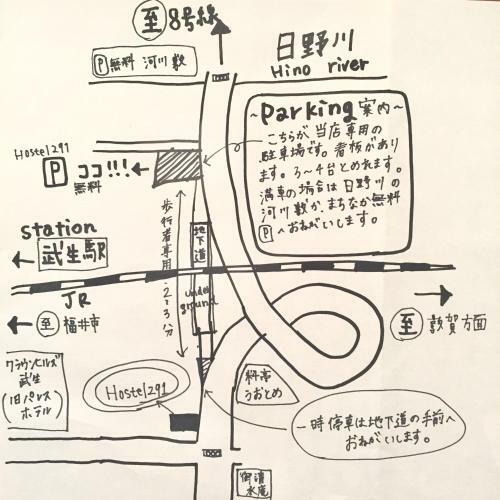 至 8号線
日野川
Hino river
P 無料 河川敷
~Parking案内~
こちらが当店専用の
駐車場です。看板があり
ます。3~4台とめれます。
満車の場合は日野川の
河川敷か、まちなか無料
Pへおねがいします。
Hostel291
P ココ!!!←
無料
歩行者専用・2~3分
地下道
under
ground
station
← 武生駅
JR
← 至 福井市
→
至 敦賀方面
クラウンヒルズ
武生
(旧パレス
ホテル)
Hostel291
料亭
うおとめ
一時停車は地下道の手前へ
おねがいします。
御清
水庵